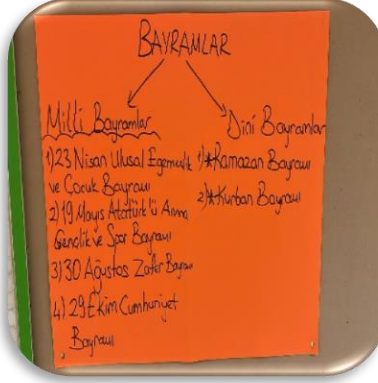 BAYRAMLAR
Milli Bayramlar
1) 23 Nisan Ulusal Egemenlik
ve Çocuk Bayramı
2) 19 Mayıs Atatürk'ü Anma
Gençlik ve Spor Bayramı
3) 30 Ağustos Zafer Bayramı
4) 29 Ekim Cumhuriyet
Bayramı
Dini Bayramlar
1)*Ramazan Bayramı
2)*Kurban Bayramı